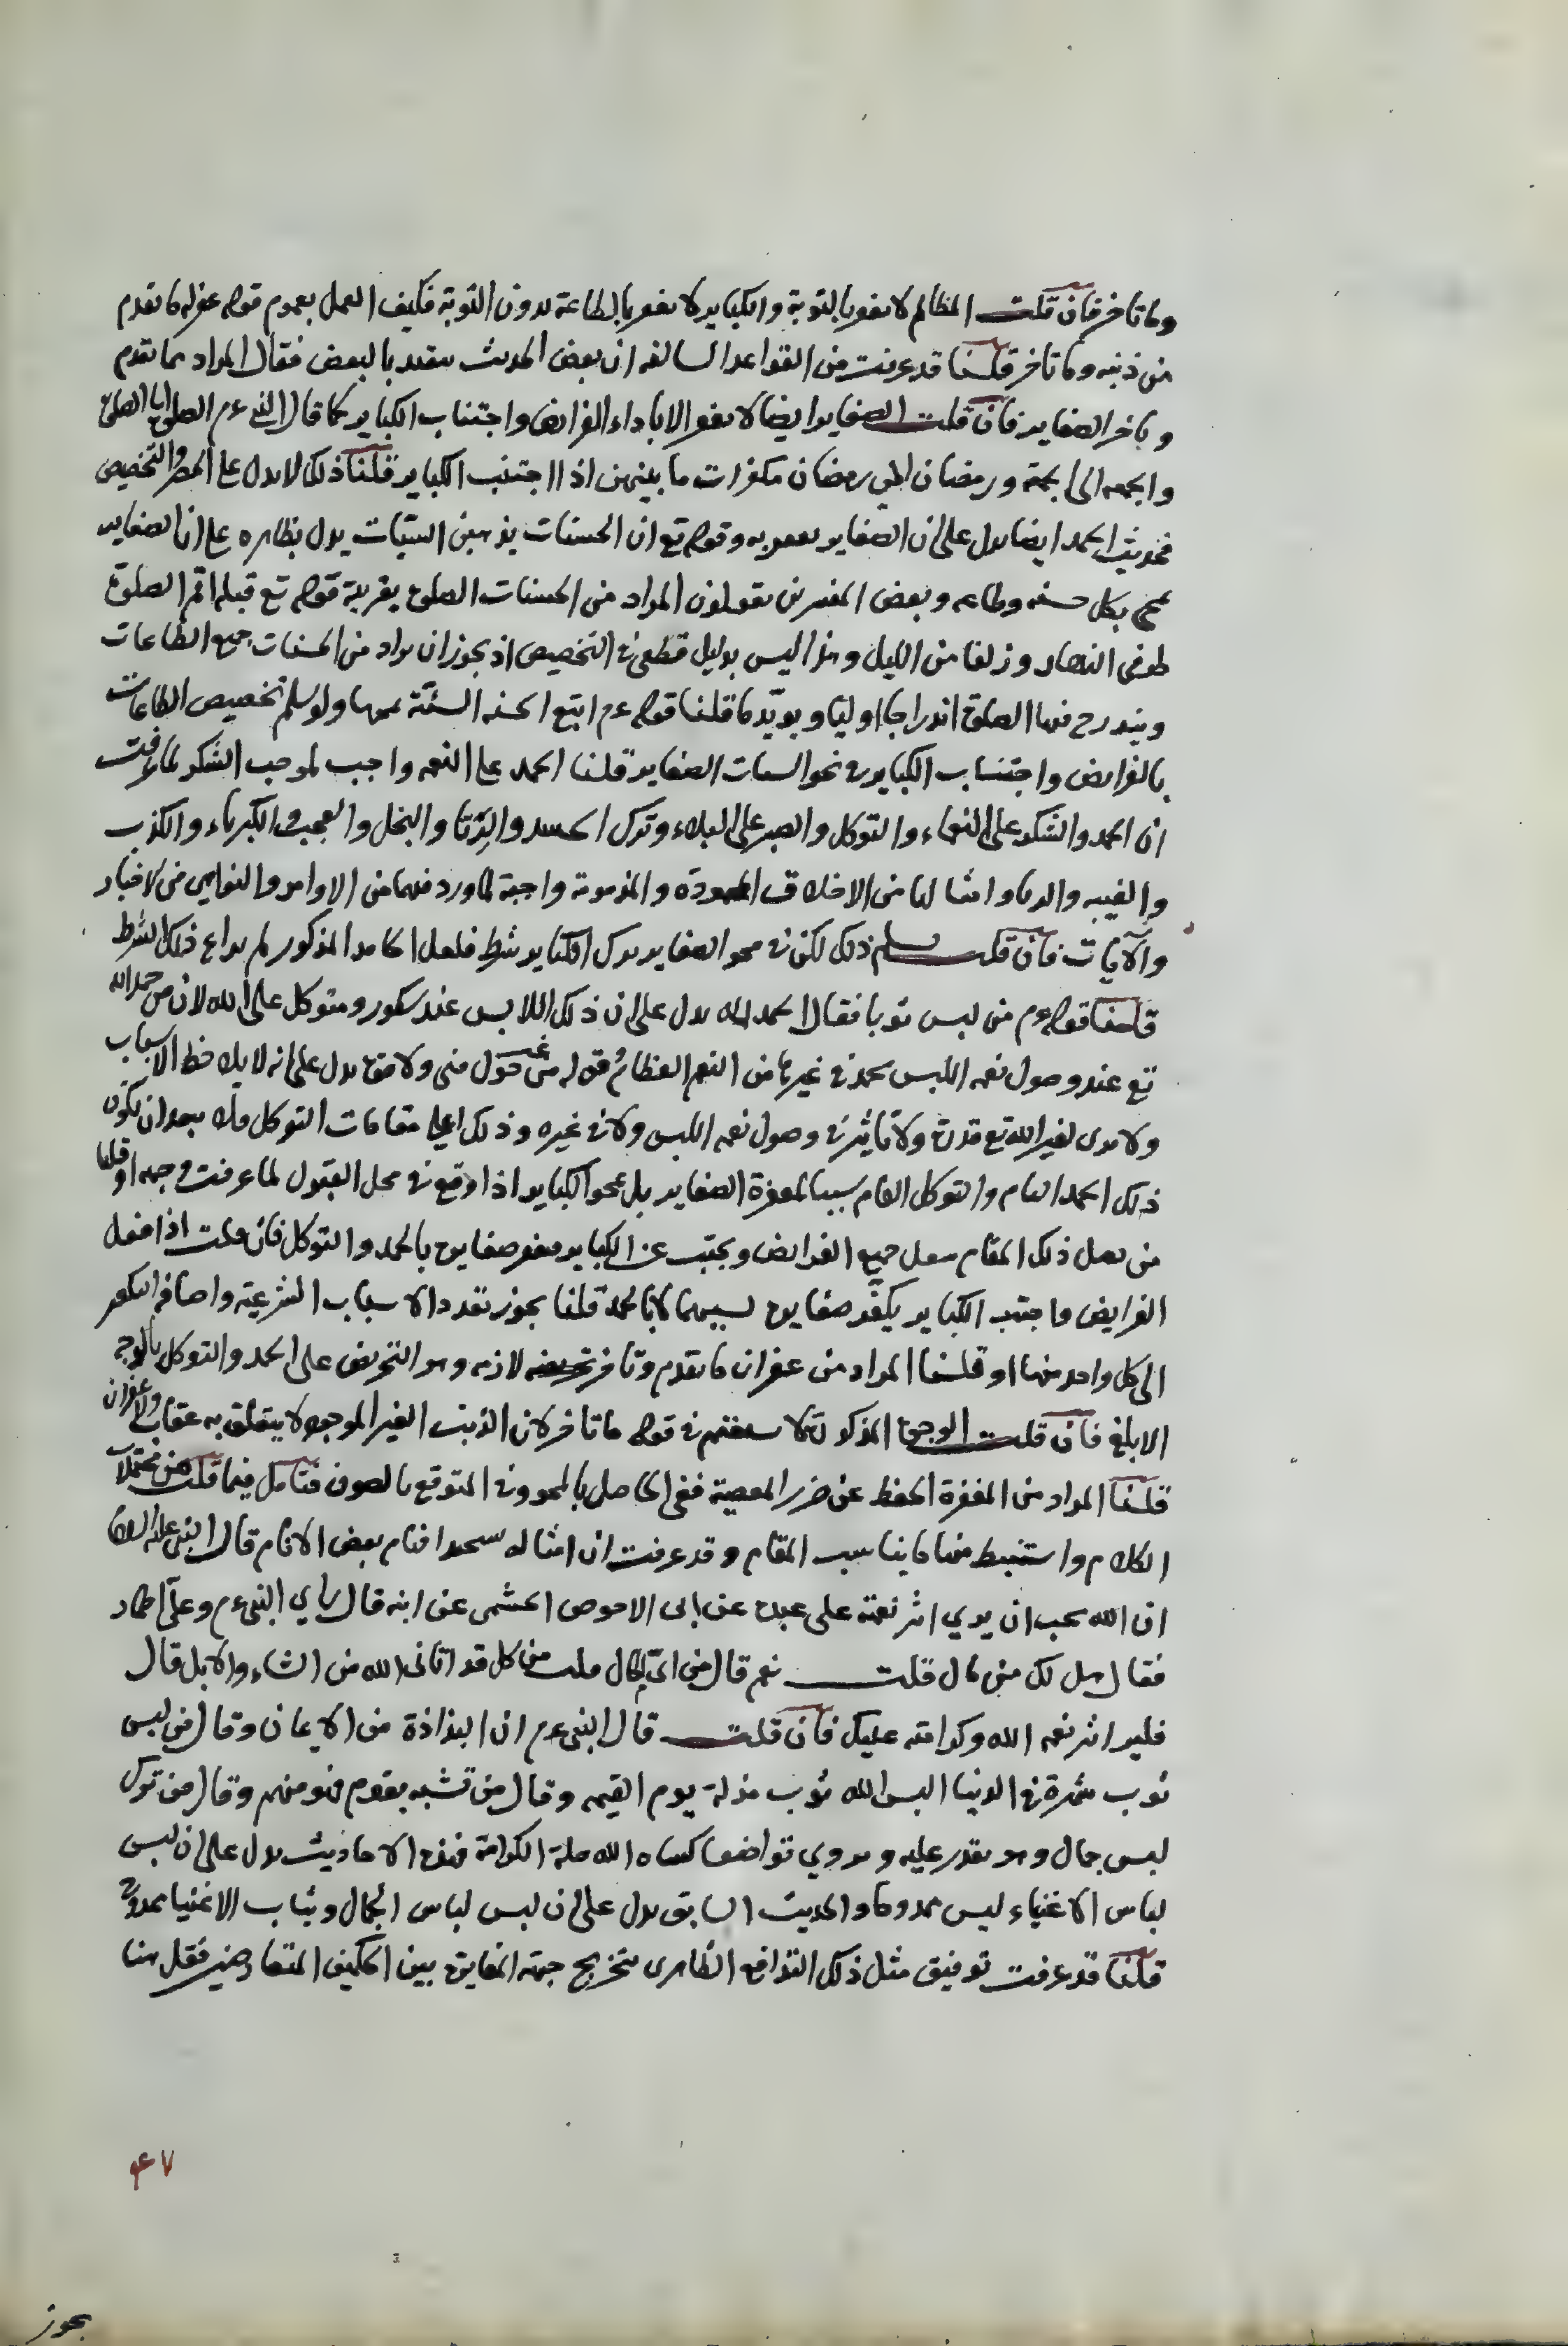 وما تاخر فان قلت المظالم لا يغفر بالتوبة والكباير لا يغفر بالطاعة بدون التوبة فكيف العمل بعموم قوله غفر له ما تقدم
من ذنبه وما تاخر قلنا قد عرفت من القواعد السالفه ان بعض الحديث يتقيد بالبعض فقال المراد مما تقدم
وتاخر الصغاير فان قلت الصغاير ايضا لا يغفر الا باداء الفرايض واجتناب الكباير كما قال النبي عم الصلوة الى الصلوة
والجمعه الى الجمعة ورمضان الى رمضان مكفرات ما بينهن اذا اجتنب الكباير قلنا ذلك لا يدل على الحصر والتخصيص
فحديث الحمد ايضا يدل على ان الصغاير يغفر به وقوله تع ان الحسنات يذهبن السيّئات يدل بظاهره على ان الصغاير
تمحى بكل حسنه وطاعه وبعض المفسرين يقولون المراد من الحسنات الصلوة بقرينة قوله تع قبله اقم الصلوة
طرفي النهار وزلفا من الليل وهذا ليس بدليل قطعي في التخصيص اذ يجوز ان يراد من الحسنات جميع الطاعات
ويندرج فيها الصلوة اندراجا اوليا ويويّد ما قلنا قوله عم اتبع الحسنه السيّئة تمحها ولو سلم تخصيص الطاعات
بالفرايض واجتناب الكباير في نحو السيات الصغاير قلنا الحمد على النعمه واجب لموجب الشكر لما عرفت
ان الحمد والشكر على النعماء والتوكل والصبر على البلاء وترك الحسد والرّيا والبخل والعجب والكبرياء والكذب
والغيبه والريا وامثالها من الاخلاق المحمودة والمذمومة واجبة لما ورد فيهما من الاوامر والنواهي من الاخبار
والآيات فان قلت سلم ذلك لكن في محو الصغاير يترك الكباير شرط فلعل الحامد المذكور لم يراع ذلك الشرط
قلنا قوله عم من لبس ثوبا فقال الحمد لله يدل على ان ذلك اللابس عبد شكور ومتوكل على الله لان من حمد الله
تع عند وصول نعمه اللبس يحمد في غيرها من النعم العظام وقوله من غير حول مني ولا قوة يدل على انه لا يلاحظ الاسباب
ولا يرى لغير الله تع قدرة ولا تاثير في وصول نعمه اللبس ولا في غيره وذلك اعلى مقامات التوكل فلا يبعد ان يكون
ذلك الحمد التام والتوكل العام سببا لمغفرة الصغاير بل لمحو الكباير اذا وقع في محل القبول لما عرفت وجهه او قلنا
من يصل ذلك المقام يفعل جميع الفرايض ويجتنب عن الكباير فيغفر صغايره بالحمد والتوكل فان قلت اذا فعل
الفرايض واجتنب الكباير يكفّر صغايره بسببهما لا بالحمد قلنا يجوز تعدد الاسباب الشرعية واضافة التكفير
الى كل واحد منها او قلنا المراد من غفران ما تقدم وتاخر لازمه وهو التحريض على الحمد والتوكل بالوجه
الابلغ فان قلت الوجوه المذكورة لا يستقيم في قوله ما تاخر لان الذنب الغير الموجود لا يتعلق به عقاب ولا غفران
قلنا المراد من المغفرة الحفظ عن ضرر المعصية ففي الحاصل بالمحو وفي المتوقع بالصون فتامل فيما قلت من محتملات
الكلام واستنبط منها ما يناسب المقام وقد عرفت ان امثاله افهام بعض الانام قال النبي عليه السلام
ان الله يحب ان يري اثر نعمته على عبده عن ابى الاحوص الجشمى عن ابيه قال راي النبي عم وعلىّ اطمار
فقال هل لك من مال قلت نعم قال من اىّ المال قلت من كل قد اتانى الله من الشاء والابل قال
فلير اثر نعمه الله وكرامته عليك فان قلت قال النبي عم ان البذاذة من الايمان وقال من لبس
ثوب شهرة في الدنيا البس الله ثوب مذلة يوم القيمه وقال من تشبه بقوم فهو منهم وقال من ترك
لبس جمال وهو يقدر عليه وروي تواضعا كساه الله حلة الكرامة فهذه الاحاديث يدل على ان لبس
لباس الاغنياء ليس ممدوحا والحديث السابق يدل على ان لبس لباس الجمال وثياب الاغنيا ممدوح
قلنا قد عرفت توفيق مثل ذلك التدافع الظاهرى بتخريج جهة المغايرة بين الحكمين المتعارضين فقل هنا
۴۷
يجوز